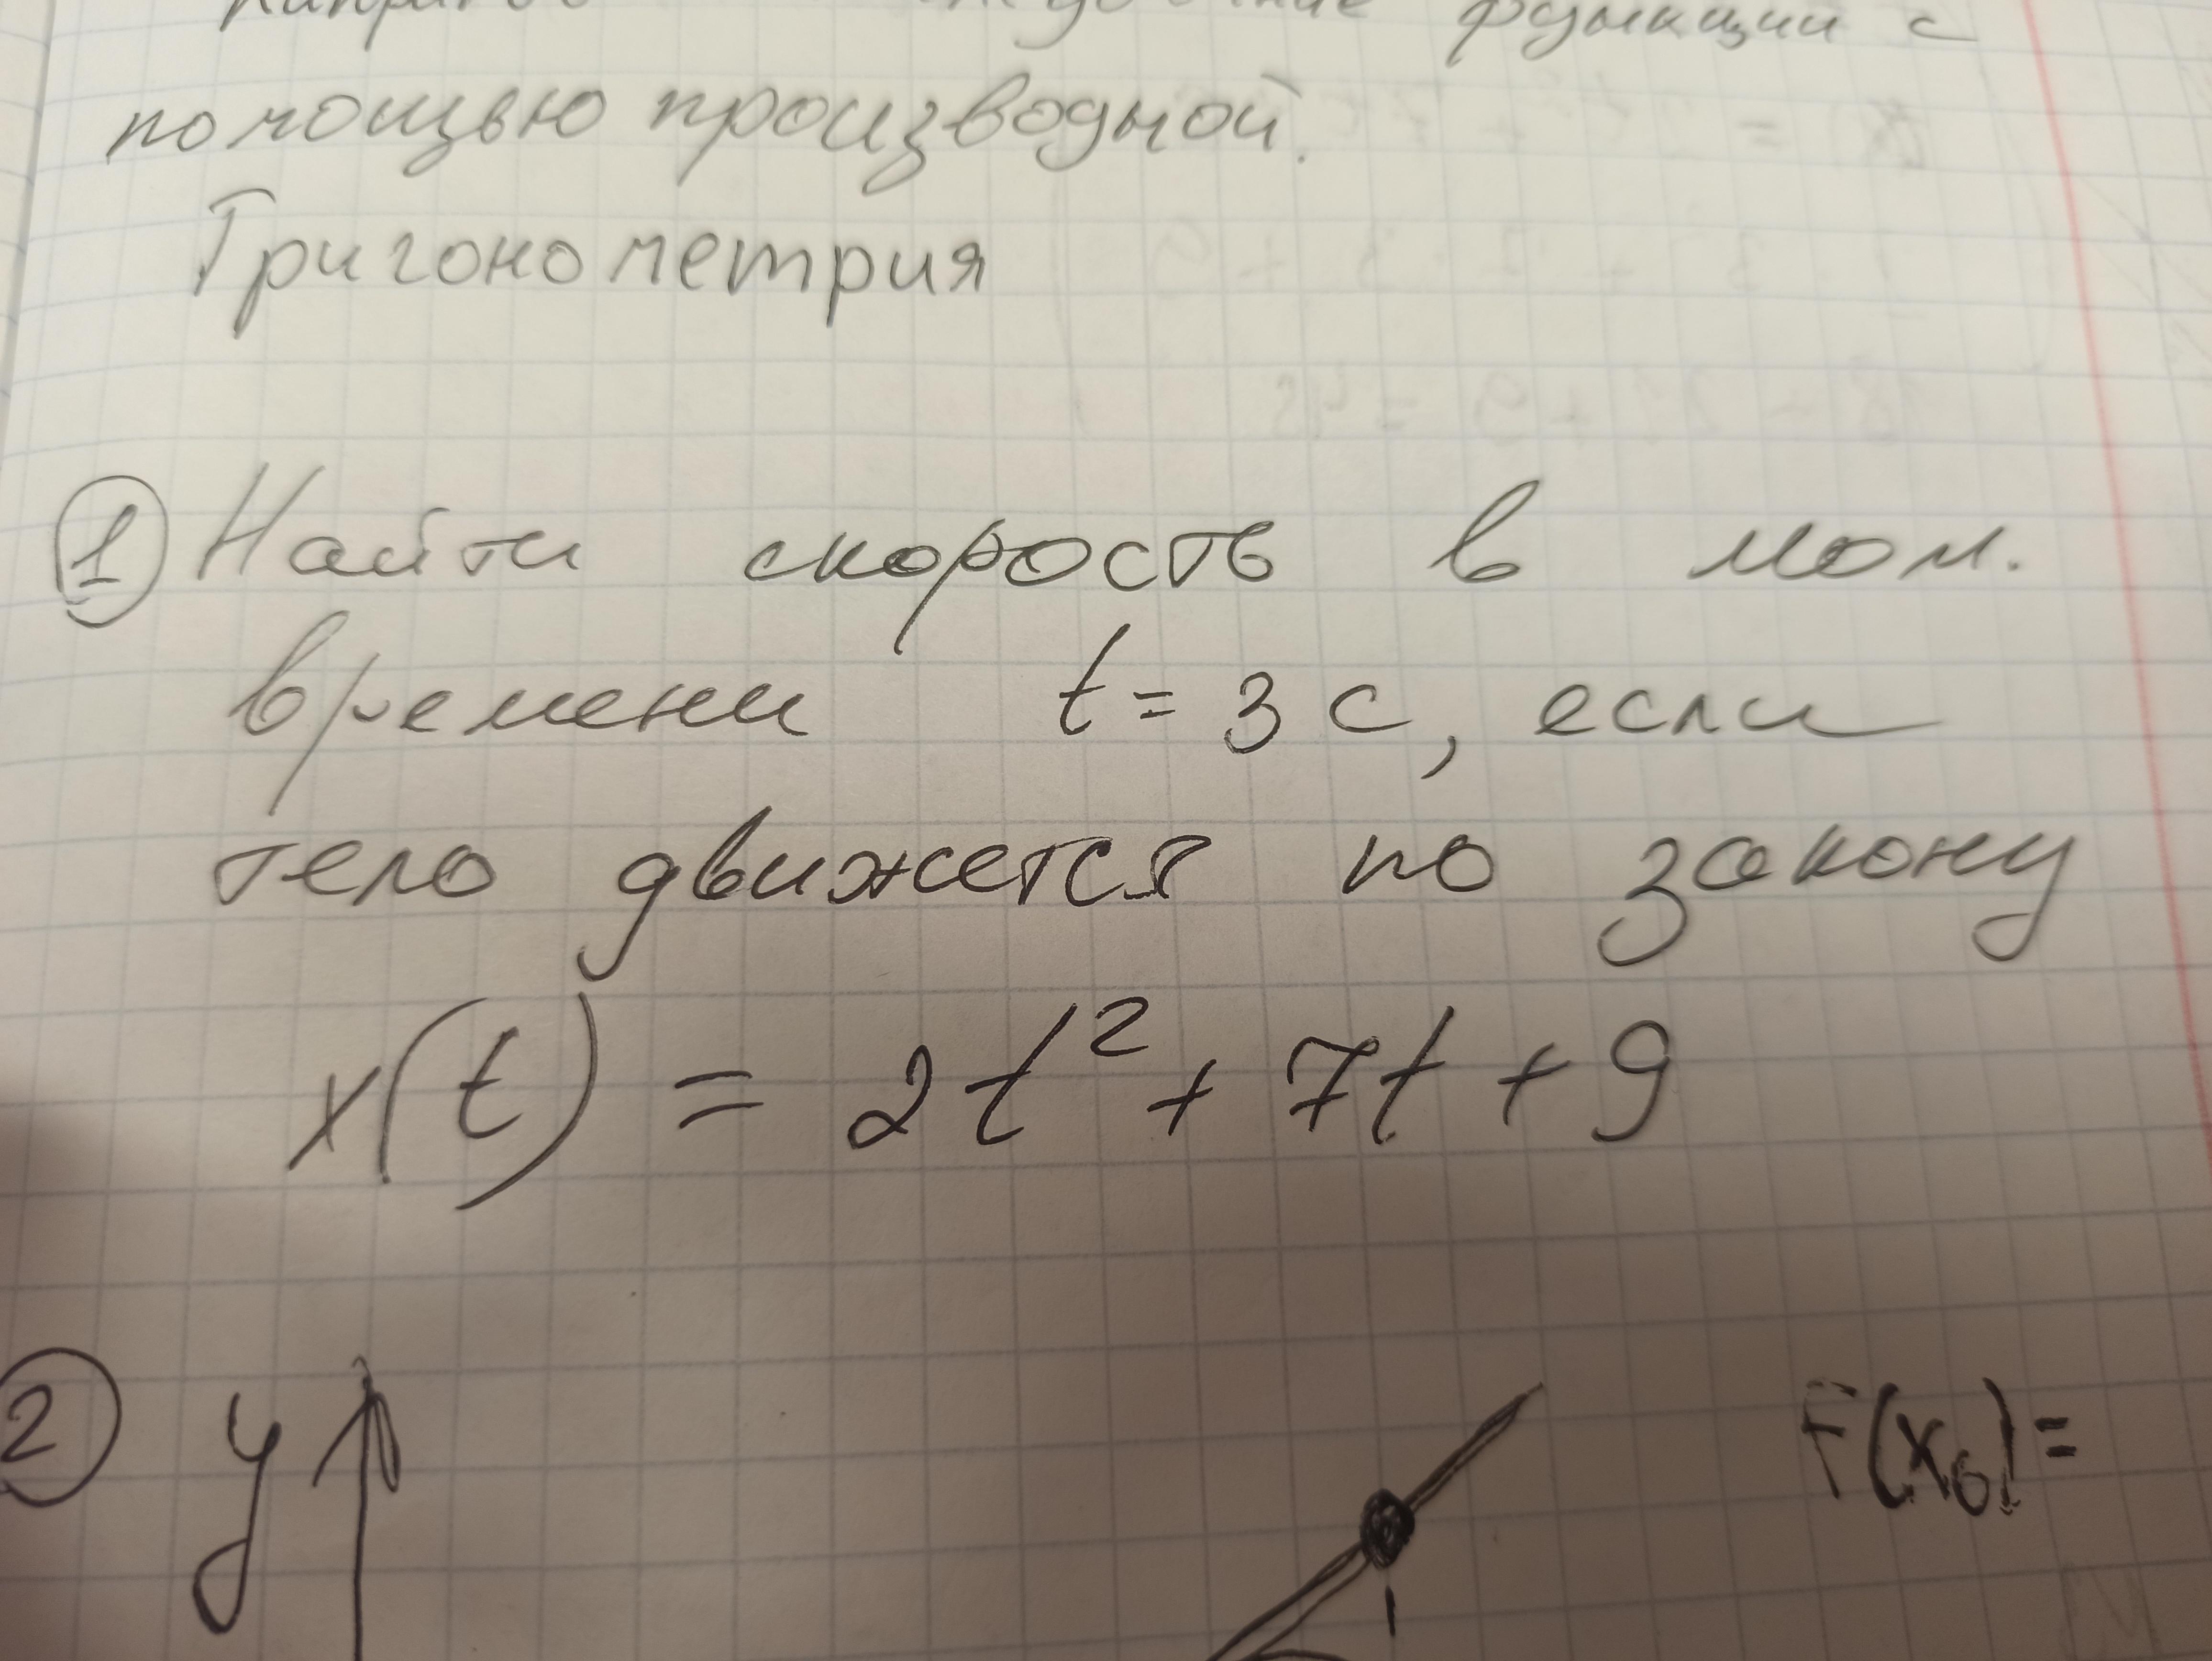 функции с
помощью производной.
Тригонометрия
1 Найти скорость в мом.
времени t = 3 с, если
тело движется по закону
x(t) = 2t² + 7t + 9
2 y F(x₀) =